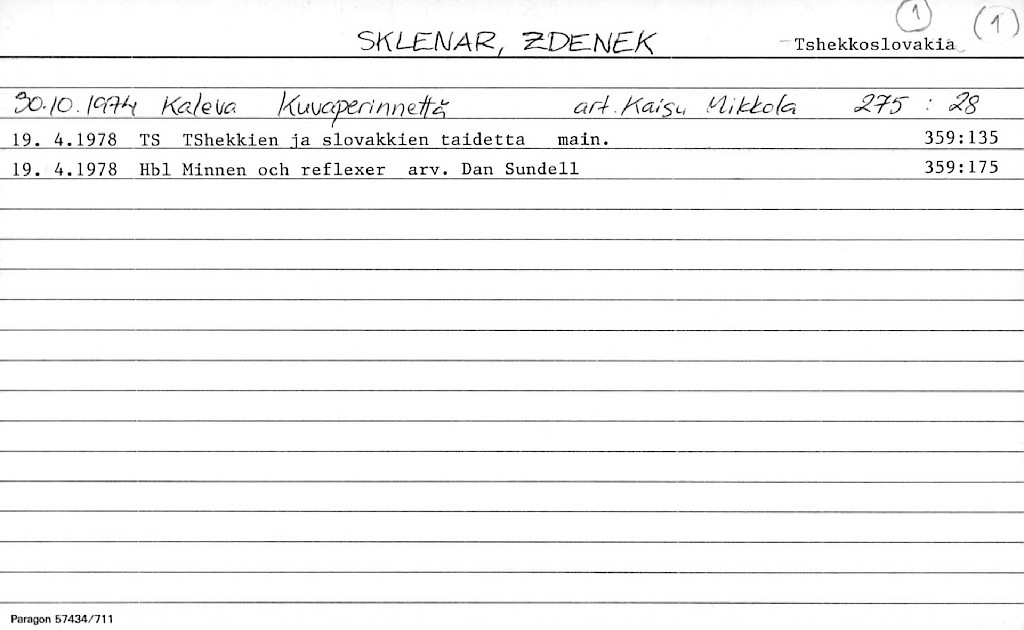 1 (1)
SKLENAR, ZDENEK Tshekkoslovakia
30.10.1974 Kaleva Kuvaperinnettä art. Kaisu Mikkola 275 : 28
19. 4.1978 TS TShekkien ja slovakkien taidetta main. 359:135
19. 4.1978 Hbl Minnen och reflexer arv. Dan Sundell 359:175
Paragon 57434/711